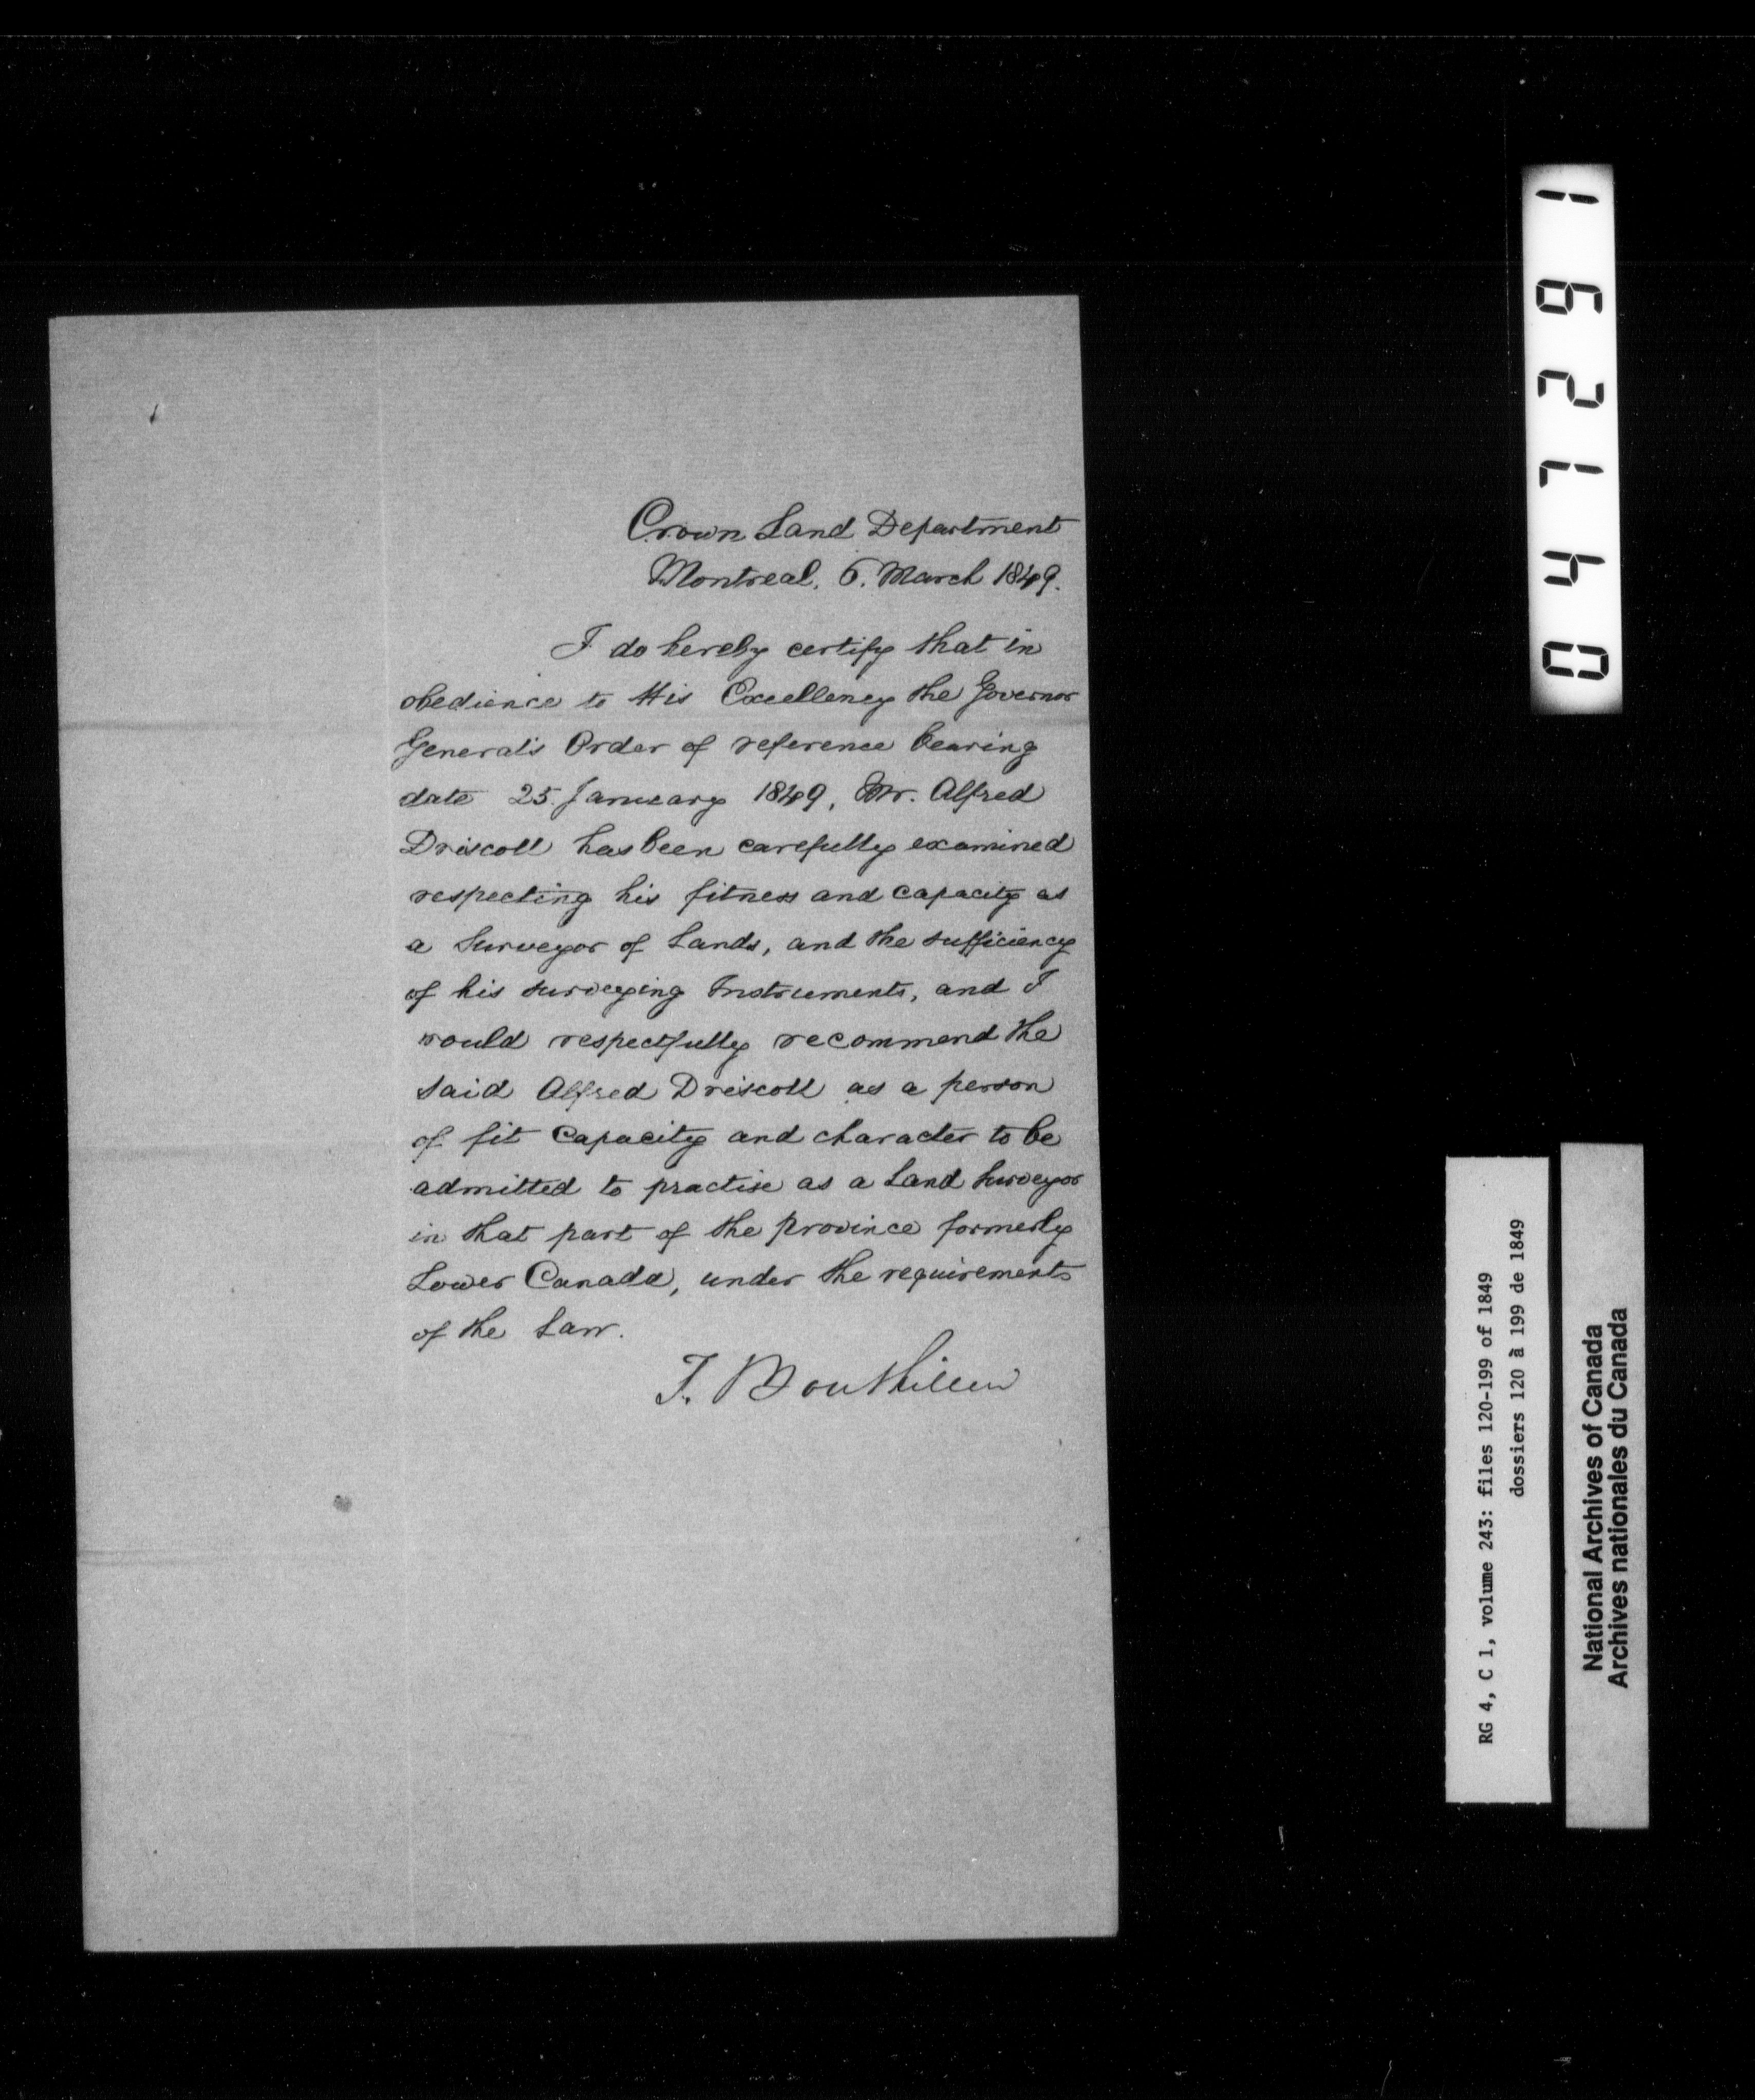 Crown Land Department
Montreal, 6. March 1849.
I do hereby certify that in
obedience to His Excellency the Governor
General's Order of reference bearing
date 25. January 1849, Mr. Alfred
Driscoll has been carefully examined
respecting his fitness and capacity as
a Surveyor of Lands, and the sufficiency
of his surveying Instruments, and I
would respectfully recommend the
said Alfred Driscoll as a person
of fit Capacity and character to be
admitted to practise as a Land Surveyor
in that part of the Province formerly
Lower Canada, under the requirements
of the Law.
T. Bouthillier
041291
RG 4, C 1, volume 243: files 120-199 of 1849
dossiers 120 à 199 de 1849
National Archives of Canada
Archives nationales du Canada